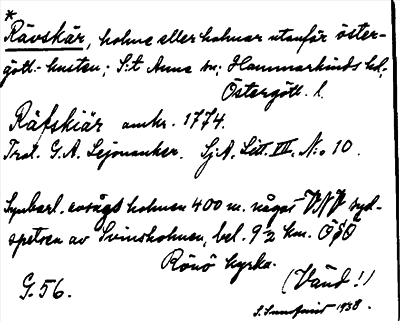 *
Rävskär, holme eller holmar utanför öster-
götl.-kusten; S:t Anna sn; Hammarkinds hd,
Östergötl. l.
Räfskiär omkr. 1774.
Trol. G.A. Lejonanker. Sj.A. Litt. III, N:o 10.
Synbarl. avságs holmen 400 m. något VNV syd-
spetsen av Svinsholmen, bel. 9 2 km. ÖSÖ
Rönö kyrka.
(Vänd!)
G.56.
1938.